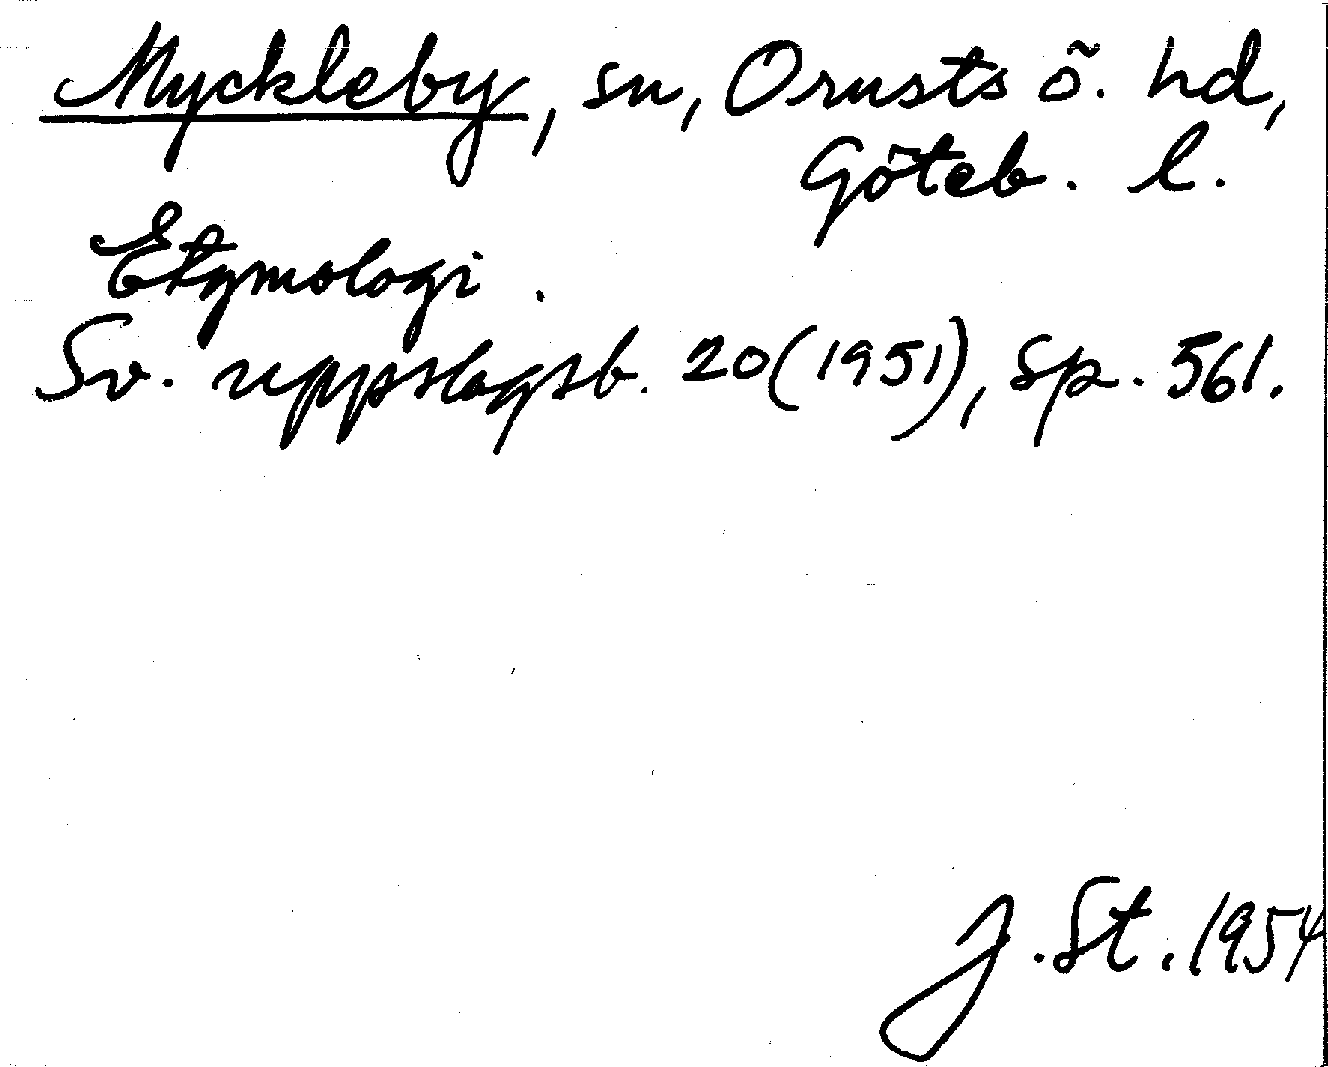 Myckleby, sn, Orusts ö. hd,
Göteb. l.
Etymologi.
Sv. uppslagsb. 20(1951), sp. 561.
J. St. 1954